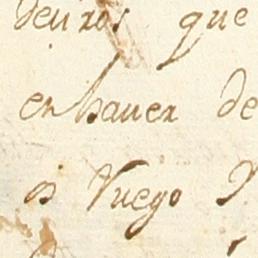 deuzos que
en haver de
os Ruego y